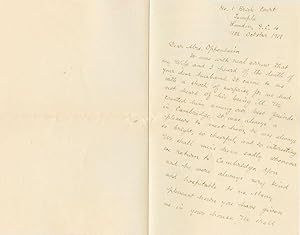 No. 1 Brick Court
Temple
London, E.C.4
October 19
Dear Mrs. Oppenheim
It was with real sorrow that
my wife and I heard of the death of
your dear husband. It came to us
with a shock of surprise, for we had
not heard of his being ill. We
counted him among our best friends
in Cambridge. It was always a
pleasure to meet him, he was always
so bright, so cheerful and so interesting.
We shall miss him sadly whenever
we return to Cambridge. You
and he were always very kind
and hospitable to us. Many
pleasant hours you have given
us in your house. We shall